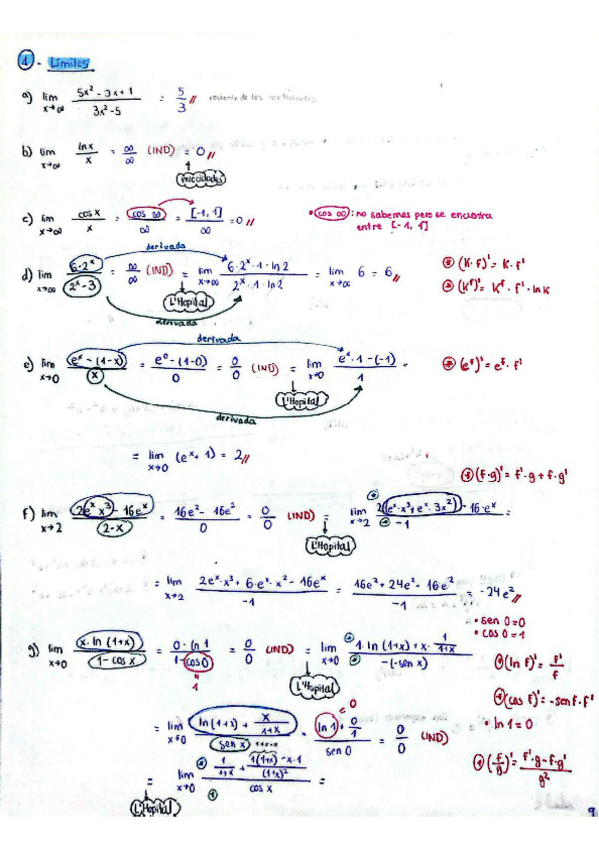 1 - Límites
a) lim x→∞ (5x² - 3x + 1)/(3x² - 5) = 5/3 // cociente de los coeficientes
b) lim x→∞ lnx/x = ∞/∞ (IND) = 0 //
↑ velocidades
c) lim x→∞ cos x/x = cos ∞/∞ = [-1, 1]/∞ = 0 // • cos ∞: no sabemos pero se encuentra
entre [-1, 1]
derivada
d) lim x→∞ (6·2ˣ)/(2ˣ-3) = ∞/∞ (IND) = lim x→∞ (6·2ˣ·1·ln2)/(2ˣ·1·ln2) = lim x→∞ 6 = 6 // (K·f)' = K·f'
L'Hopital (Kᶠ)' = Kᶠ·f'·lnK
derivada
derivada
e) lim x→0 (eˣ - (1-x))/x = (e⁰ - (1-0))/0 = 0/0 (IND) = lim x→0 (eˣ·1-(-1))/1 = (eᶠ)' = eᶠ·f'
L'Hopital
derivada
= lim x→0 (eˣ+1) = 2 //
(f·g)' = f'·g + f·g'
f) lim x→2 (2eˣx³ - 16eˣ)/(2-x) = (16e² - 16e²)/0 = 0/0 (IND) = lim x→2 (2(eˣ·x³+eˣ·3x²) - 16·eˣ)/-1 =
L'Hopital
= lim x→2 (2eˣ·x³ + 6·eˣ·x² - 16eˣ)/-1 = (16e² + 24e² - 16e²)/-1 = -24e² //
• sen 0=0
• cos 0=1
g) lim x→0 (x·ln(1+x))/(1-cos x) = (0·ln1)/(1-cos0) = 0/0 (IND) = lim x→0 (1·ln(1+x) + x·1/(1+x))/(-(-sen x)) (ln f)' = f'/f
" 1
L'Hopital
(cos f)' = -senf·f'
= lim x→0 (ln(1+x) + x/(1+x))/sen x = (ln1 + 0/1)/sen 0 = 0/0 (IND) • ln 1=0
=0
1+x-x
(f/g)' = (f'·g - f·g')/g²
= lim x→0 (1/(1+x) + (1(1+x) - x·1)/(1+x)²)/cos x =
L'Hopital
9